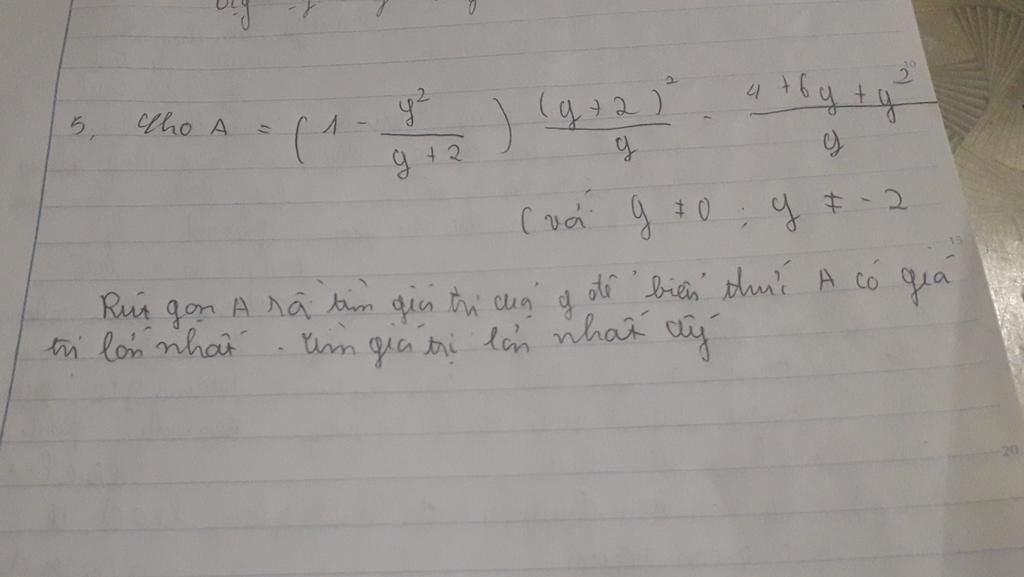 5, Cho A = (1 - \frac{y^2}{y+2}) \frac{(y+2)^2}{y} - \frac{4+6y+y^2}{y}
(vơí y ≠ 0 ; y ≠ -2
Rút gọn A rồi tìm giá trị của y để biểu thức A có giá
trị lớn nhất . tìm giá trị lớn nhất ấy
15
20